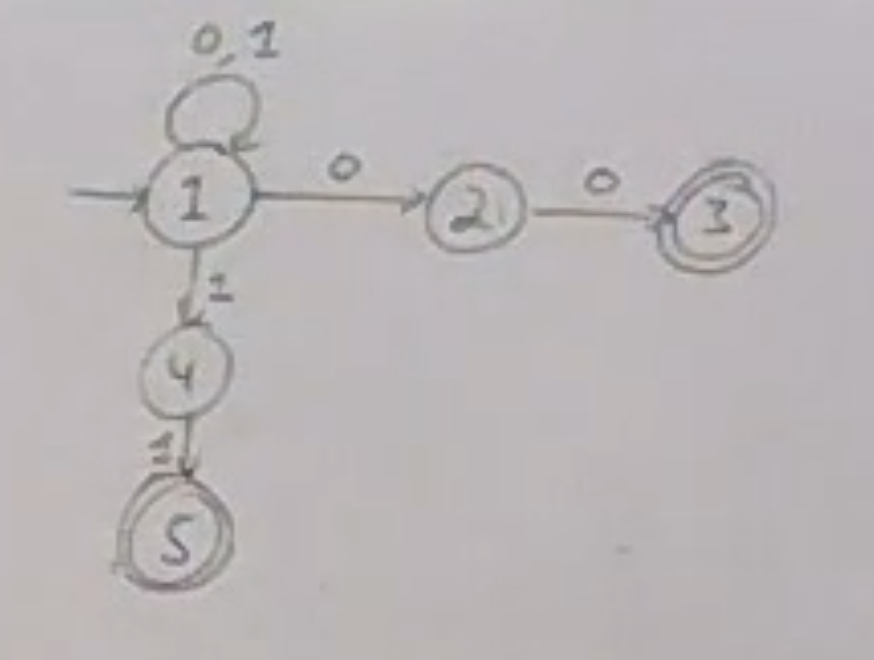 0,1
1 0 2 0 3
1
4
1
5